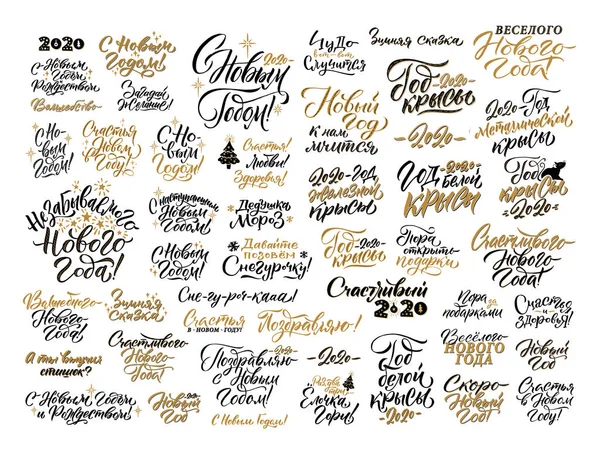 2020
С Новым
Годом!
С Новым
Годом и
Рождеством
Волшебство
Загадай
Желание!
С Но-
вым
Годом!
Счастья
в Новом
Году!
С Но-
вым
Годом!
С
2020
Новым
Годом!
Чудо
вот-вот
Случится
Зимняя сказка
Год 2020
Крысы
-2020-
ВЕСЕЛОГО
Нового
Года!
Новый
год
к нам
мчится
2020-Год
Металической
крысы
Счастья!
Любви!
Здоровья!
2020-год
железной
крысы
Год
-2020-
белой
крысы
Год
крысы
2020
Незабываемого
Нового
Года!
С наступающим
Новым
Годом!
Дедушка
Мороз
С Новым
Годом!
Давайте
позовём
Снегурочку!
Год -2020-
крысы
Пора
открыть
подарки
Счастливого
Нового
Года!
Волшебного
Нового
Года!
Зимняя
Сказка
Сне-гу-роч-кааа!
Счастливый
2020
Пора
за
подарками
Счастья
и
здоровья!
Счастья
В · НОВОМ · ГОДУ!
Поздравляю!
А ты выучил
стишок?
Счастливого
Нового
Года!
Поздравляю
с Новым
Годом!
-2020-
Раз два три
Елочка
Гори!
Год
белой
крысы
-2020-
Весёлого
НОВОГО
ГОДА
Новый
Год
С Новым Годом
и Рождеством!
Новый
Год
2020
С Новым Годом!
Скоро
Новый
Год!
Счастья
в Новом
Году!